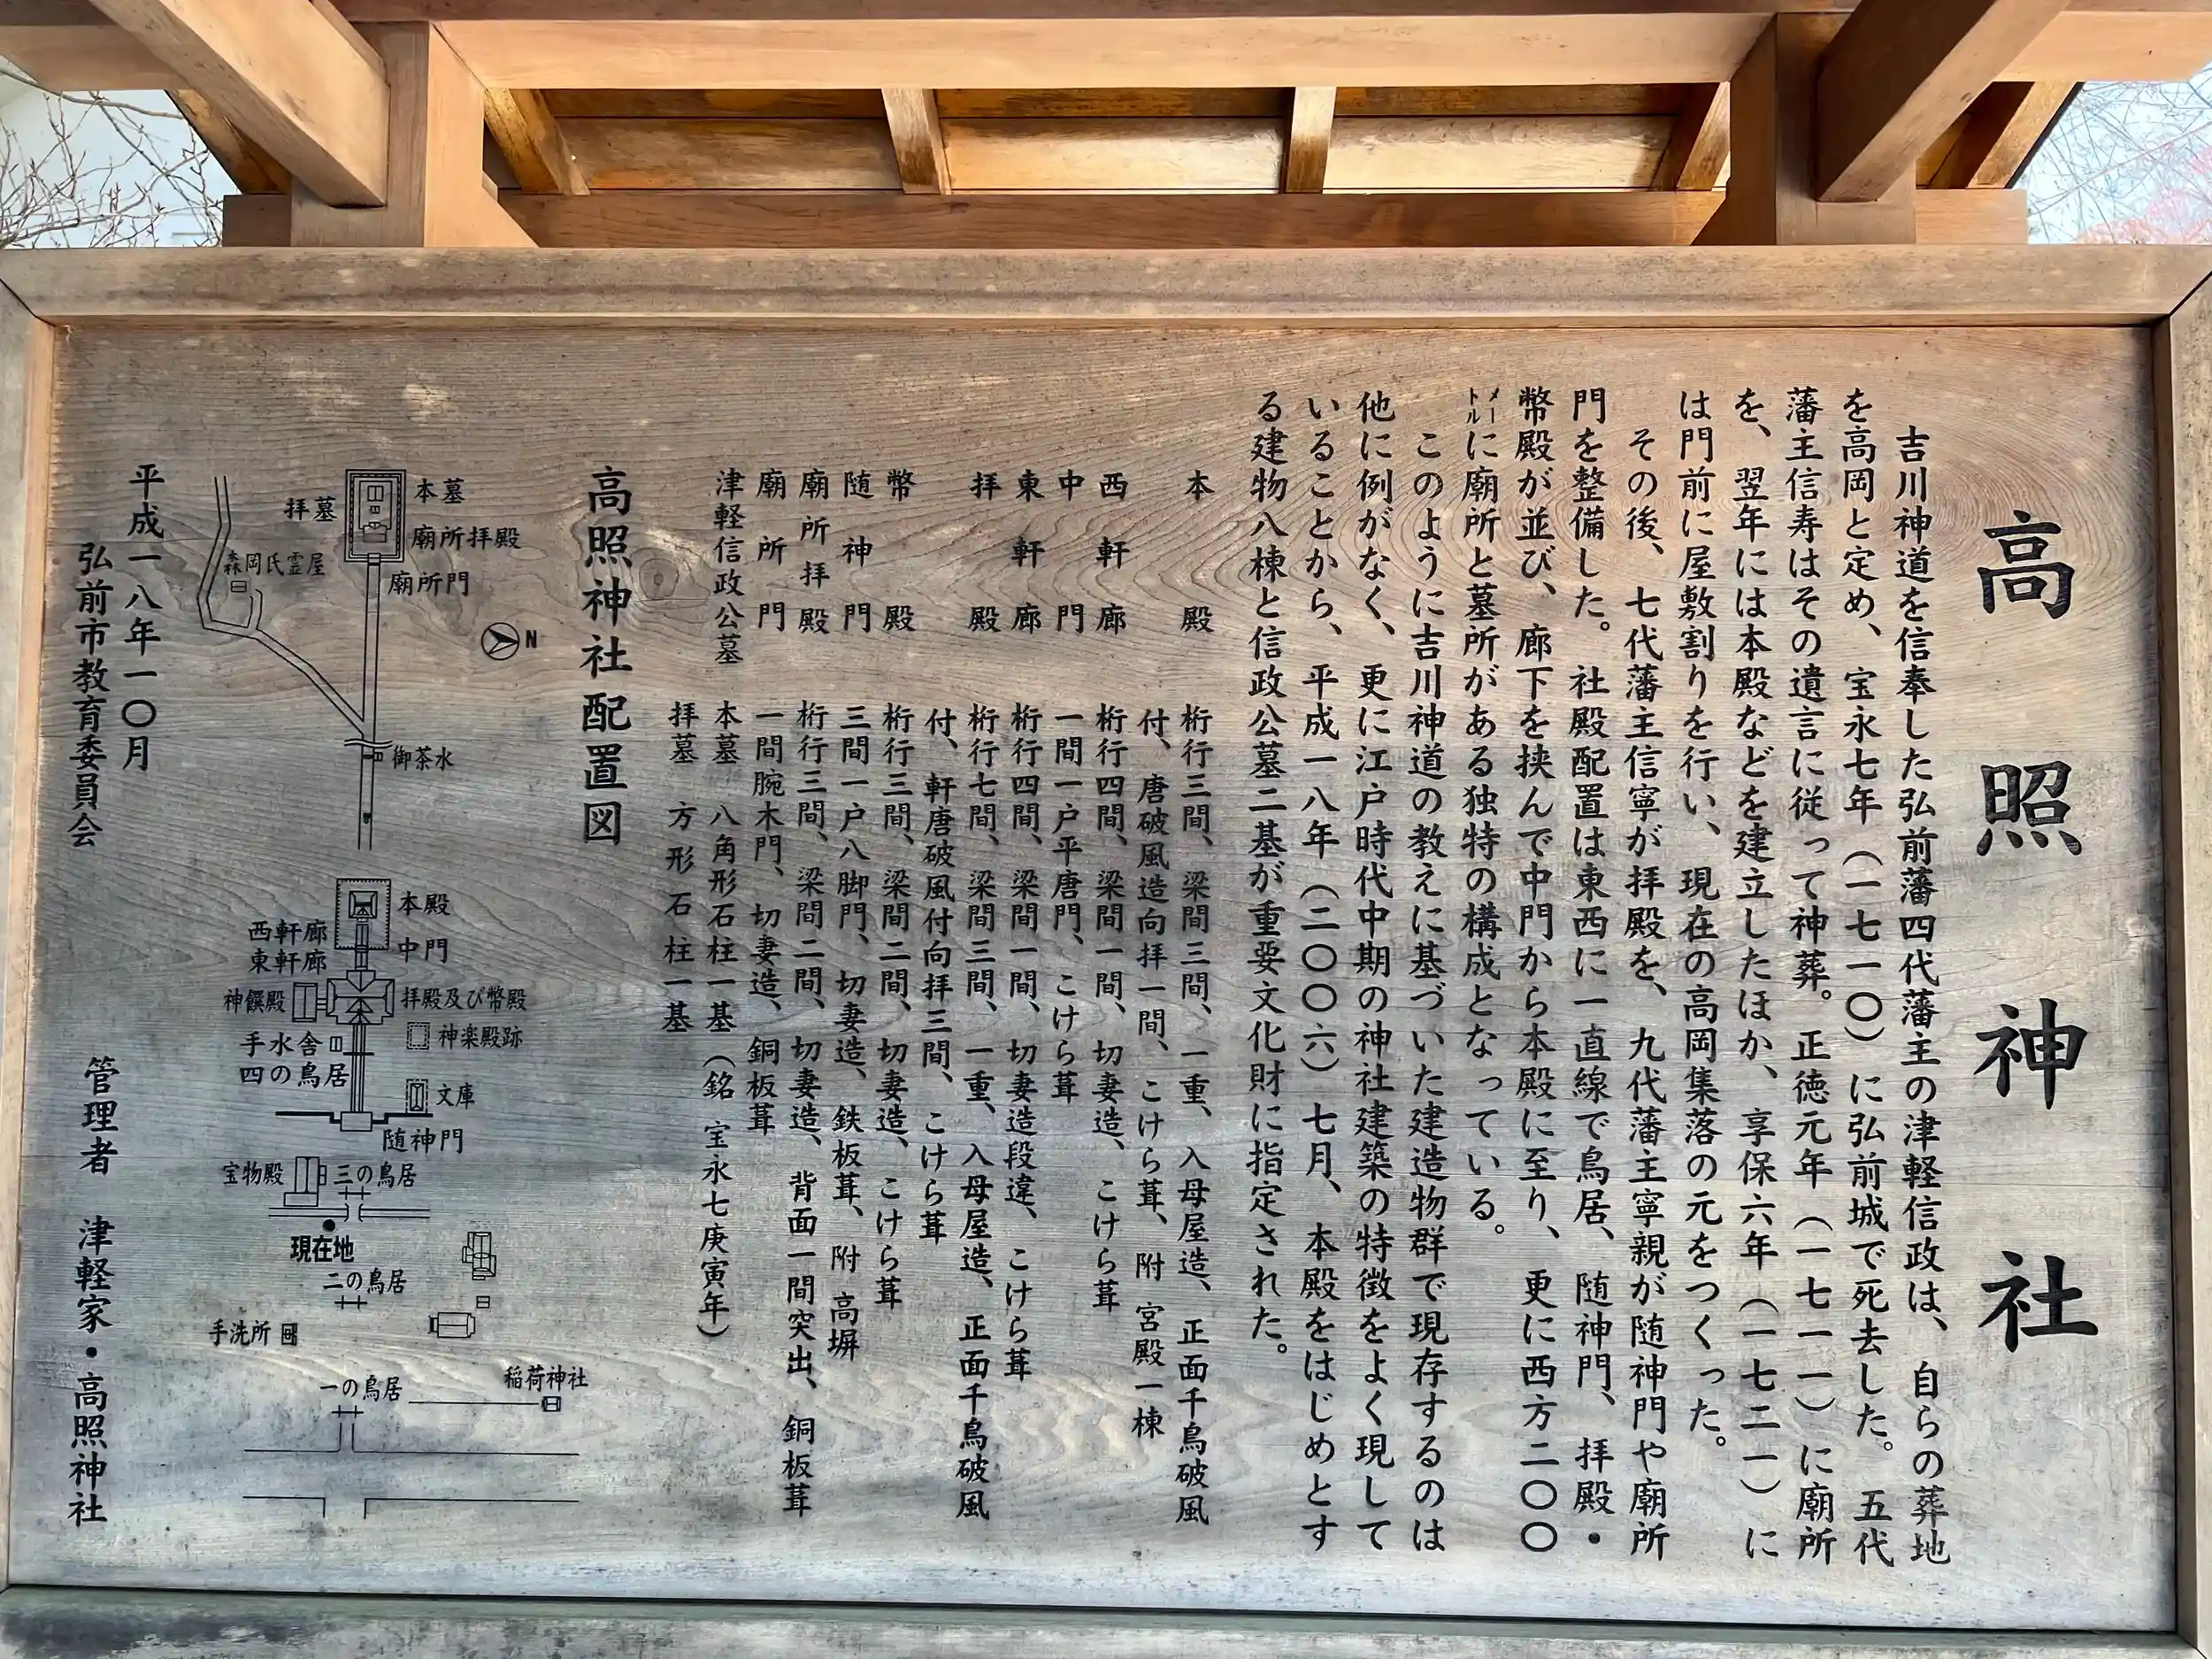 高照神社
吉川神道を信奉した弘前藩四代藩主の津軽信政は、自らの葬地
を高岡と定め、宝永七年（一七一〇）に弘前城で死去した。五代
藩主信寿はその遺言に従って神葬。正徳元年（一七一一）に廟所
を、翌年には本殿などを建立したほか、享保六年（一七二一）に
は門前に屋敷割りを行い、現在の高岡集落の元をつくった。
その後、七代藩主信寧が拝殿を、九代藩主寧親が随神門や廟所
門を整備した。社殿配置は東西に一直線で鳥居、随神門、拝殿・
幣殿が並び、廊下を挟んで中門から本殿に至り、更に西方二〇〇
メートルに廟所と墓所がある独特の構成となっている。
このように吉川神道の教えに基づいた建造物群で現存するのは
他に例がなく、更に江戸時代中期の神社建築の特徴をよく現して
いることから、平成一八年（二〇〇六）七月、本殿をはじめとす
る建物八棟と信政公墓二基が重要文化財に指定された。
本殿 桁行三間、梁間三間、一重、入母屋造、正面千鳥破風
付、唐破風造向拝一間、こけら葺、附 宮殿一棟
西軒廊 桁行四間、梁間一間、切妻造、こけら葺
中門 一間一戸平唐門、こけら葺
東軒廊 桁行四間、梁間一間、切妻造段違、こけら葺
拝殿 桁行七間、梁間三間、一重、入母屋造、正面千鳥破風
付、軒唐破風付向拝三間、こけら葺
幣殿 桁行三間、梁間二間、切妻造、こけら葺
随神門 三間一戸八脚門、切妻造、鉄板葺、附 高塀
廟所拝殿 桁行三間、梁間二間、切妻造、背面一間突出、銅板葺
廟所門 一間腕木門、切妻造、銅板葺
津軽信政公墓 本墓 八角形石柱一基（銘 宝永七庚寅年）
拝墓 方形石柱一基
高照神社配置図
本墓
拝墓
廟所拝殿
廟所門
森岡氏霊屋
N
御茶水
本殿
西軒廊
東軒廊
中門
神饌殿
拝殿及び幣殿
神楽殿跡
手水舎
四の鳥居
文庫
随神門
宝物殿
三の鳥居
現在地
二の鳥居
手洗所
稲荷神社
一の鳥居
平成一八年一〇月
弘前市教育委員会
管理者 津軽家・高照神社